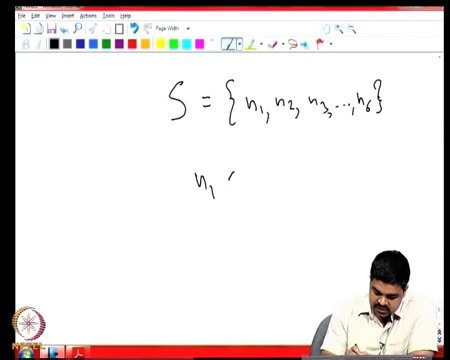 File Edit View Insert Actions Tools Help
Page Width
S = { n₁, n₂, n₃, ..., n₆ }
n₁